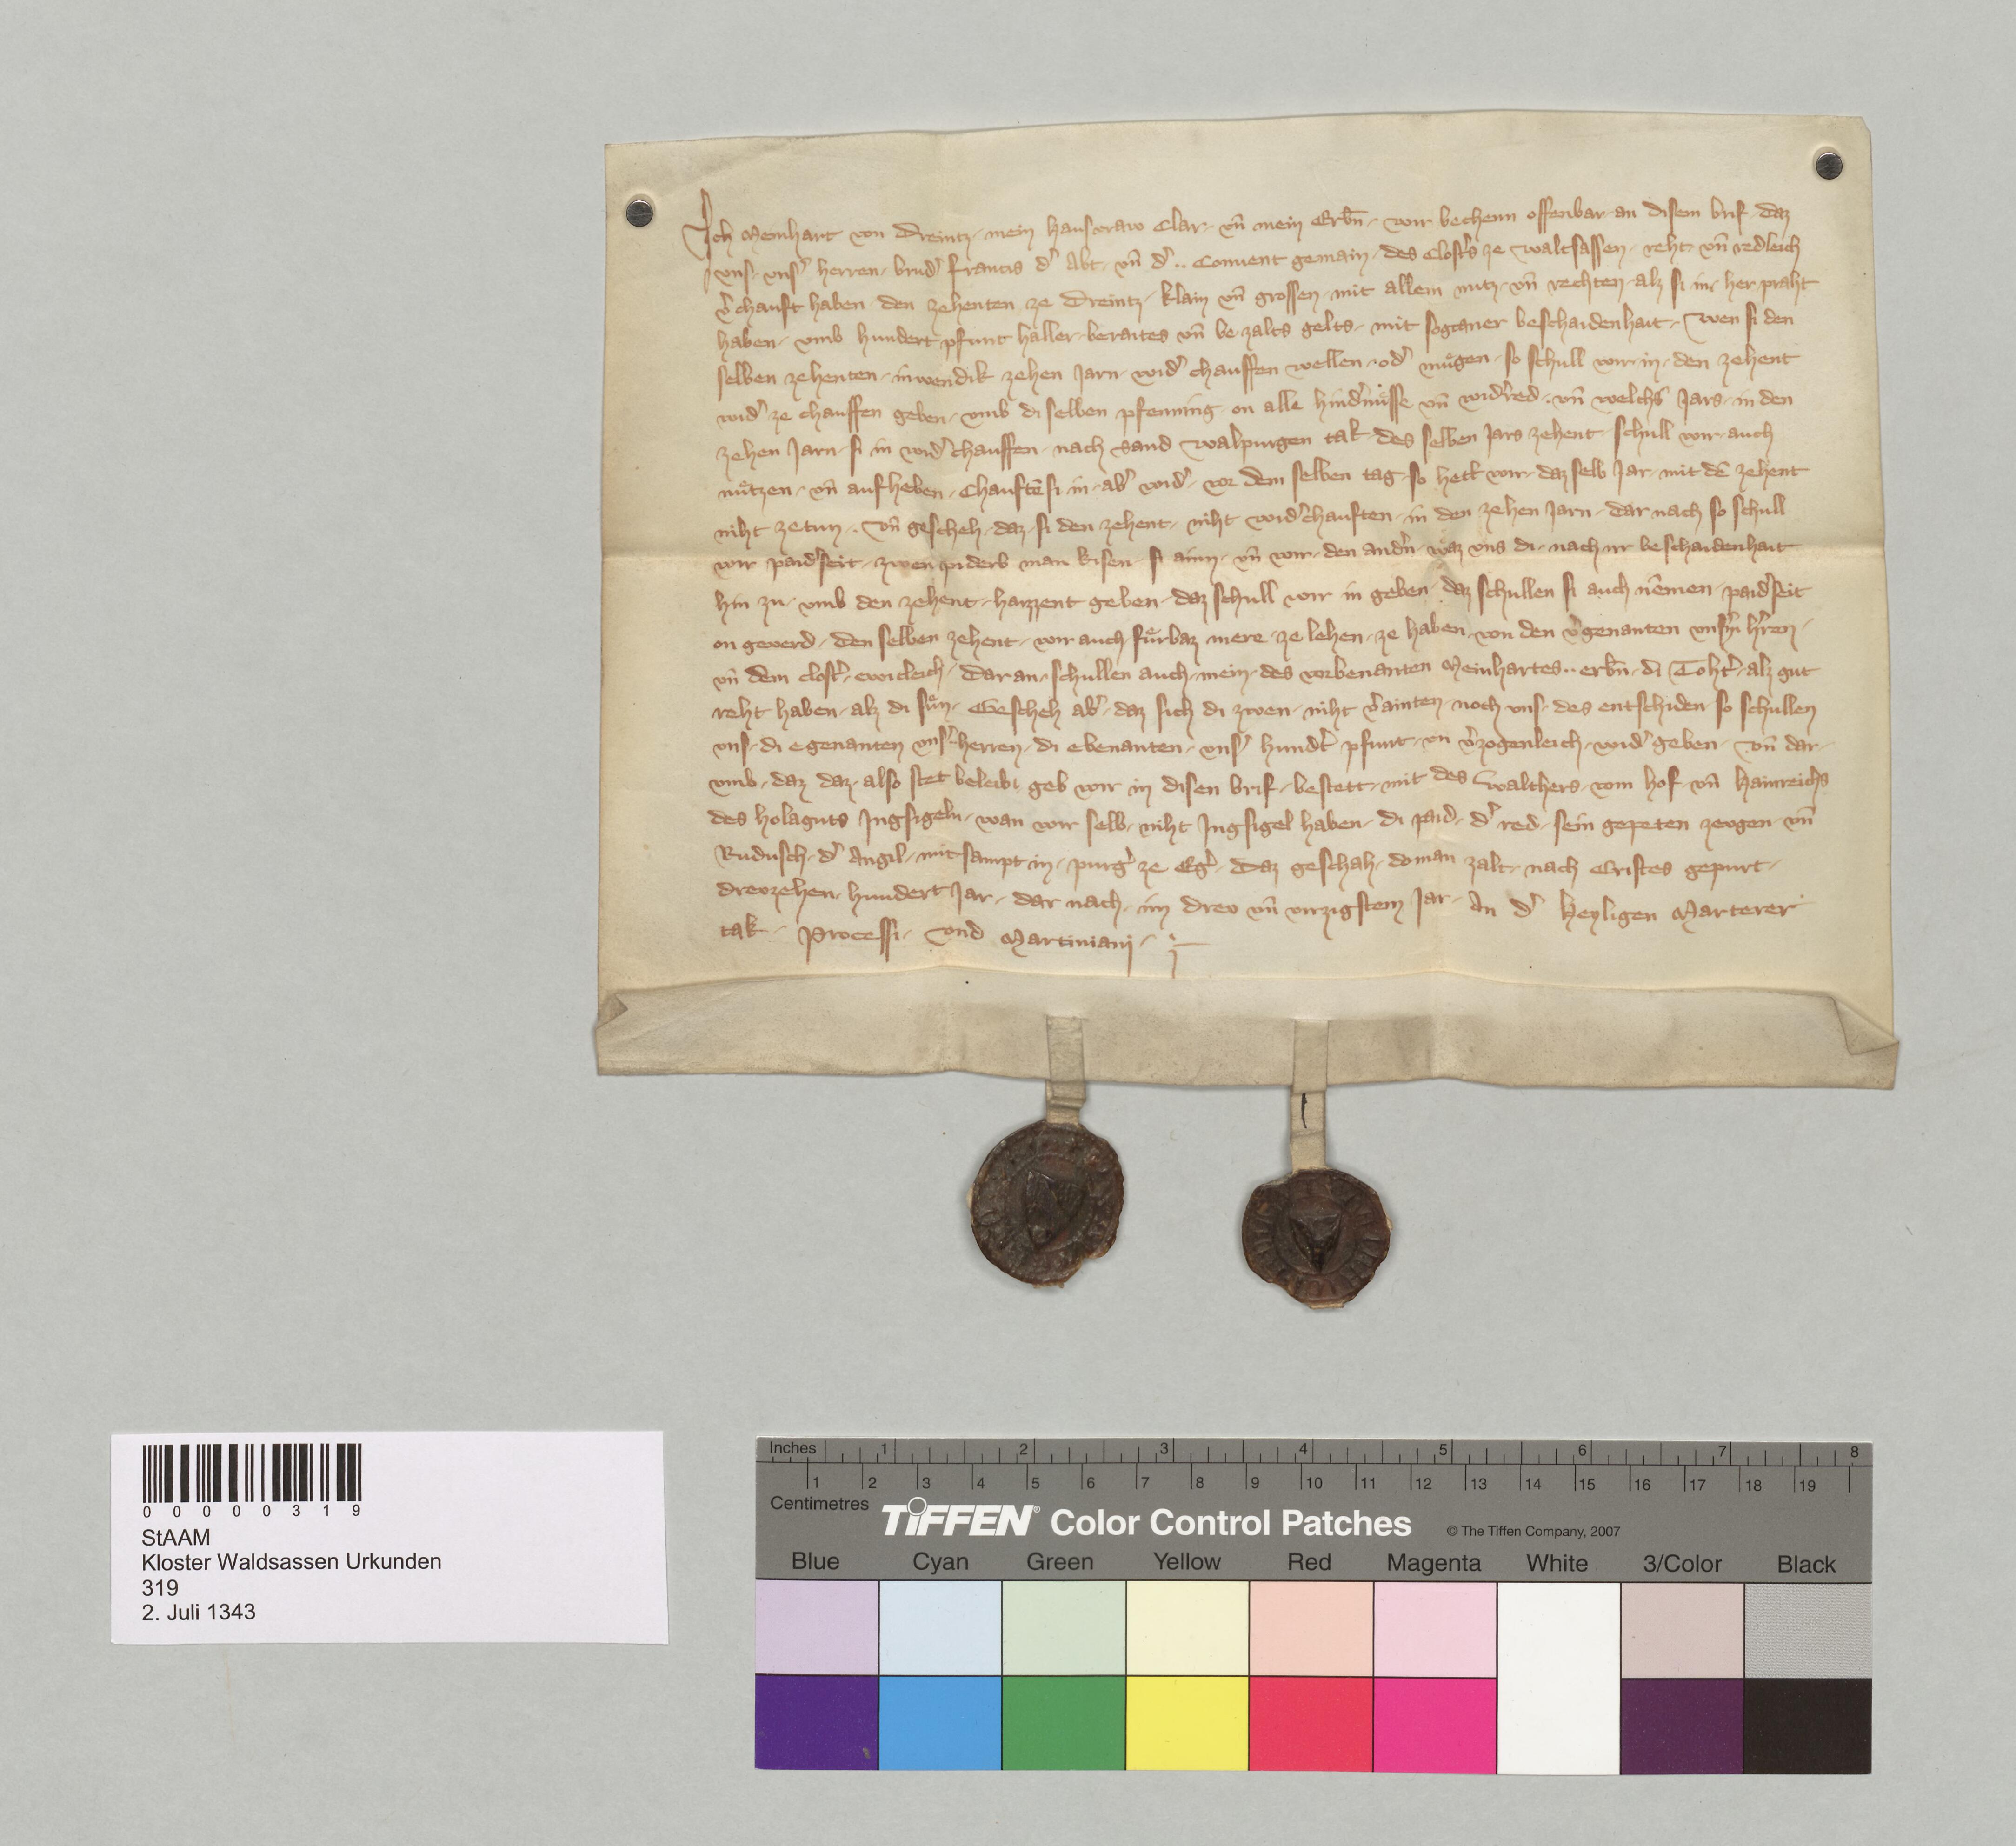 Ich Meinhart von Dreintz · mein hausvraw Clar · vn̄ mein Erbn̄ · wir bechenn offenbar an disem brif · daz
vns · vnsˀ herren · brudˀ Francis dˀ Abt · vn̄ dˀ .. Conuent gemain · des Clostˀs ze Waltsassen · reht · vn̄ redleich
vˀchauft haben · den zehenten ze Dreintz · klain vn̄ grossen · mit allem nutz · vn̄ rechten · alz si in · her praht
haben · vmb hundert pfunt haller · beraites vn̄ be zalts gelts · mit sogtaner beschaidenhait · Wen si den
selben zehenten · inwendik zehen Jarn · widˀ chauffen wellen · odˀ muͤgen · so schull wir · in · den zehent
widˀ ze chauffen geben · vmb di selben pfenning on alle hindˀnuͤsse vn̄ widˀred · vn̄ welchs Jars · in den
zehen Jarn · si in widˀ chauffen · nach Sand Walpurgen tak · des selben Jars zehent · schull wir auch
nuͤtzen · vn̄ aufheben · Chauftē si · in · abˀ widˀ · vor dem selben tag · so hett wir · daz selb Jar · mit dē zehent
niht zetun · Vn̄ gescheh · daz · si den zehent · niht widˀchauften · in den zehen Jarn · dar nach so schull
wir paidˀseit · zwen piderb man kisen · si ainn · vn̄ wir · den andˀn · waz vns di · nach ir beschaidenhait
hin zu · vmb den zehent · harzzent geben · daz schull wir in geben · daz schullen si auch nēmen · paidˀseit
on geverd · den selben zehent · wir auch · fuͤrbaz mere · ze lehen · ze haben · von den vˀgenanten vnsˀn hˀren ·
vn̄ dem clostˀ · ewicleich · daran · schullen auch · mein · des vorbenanten Meinhartes .. erbn̄ · di Tohtˀ · alz gut
reht haben · alz di suͤn · Gescheh abˀ · daz sich di zwen · niht vˀainten · noch vns · des entschiden · so schullen
vns · di egenanten vnsˀ herren · di ebenanten · vnsˀ hundˀt pfunt · vn vˀzogenleich · widˀ geben · Vn̄ dar ·
vmb · daz daz · also stet beleibt geb wir in disen brif · bestett · mit des Walthers · vom hof · vn̄ Hainreichs
des holaguts Ingsigeln · wan wir selb · niht Ingsigel haben · di paid · dˀ red · sein gepeten zevgen · vn̄
Rudusch · dˀ Angil · mitsampt in · purgˀ ze Egˀ · Daz geschah · do man zalt · nach Cristes gepurt ·
drevzehen · hundert Jar · dar nach · im drev vn̄ virzigstem Jar · An dˀ heyligen Marterer
tak · Processi · vnd Martiniani ·
00000319
StAAM
Kloster Waldsassen Urkunden
319
2. Juli 1343
Inches 1 2 3 4 5 6 7 8
1 2 3 4 5 6 7 8 9 10 11 12 13 14 15 16 17 18 19
Centimetres
TIFFEN® Color Control Patches © The Tiffen Company, 2007
Blue Cyan Green Yellow Red Magenta White 3/Color Black